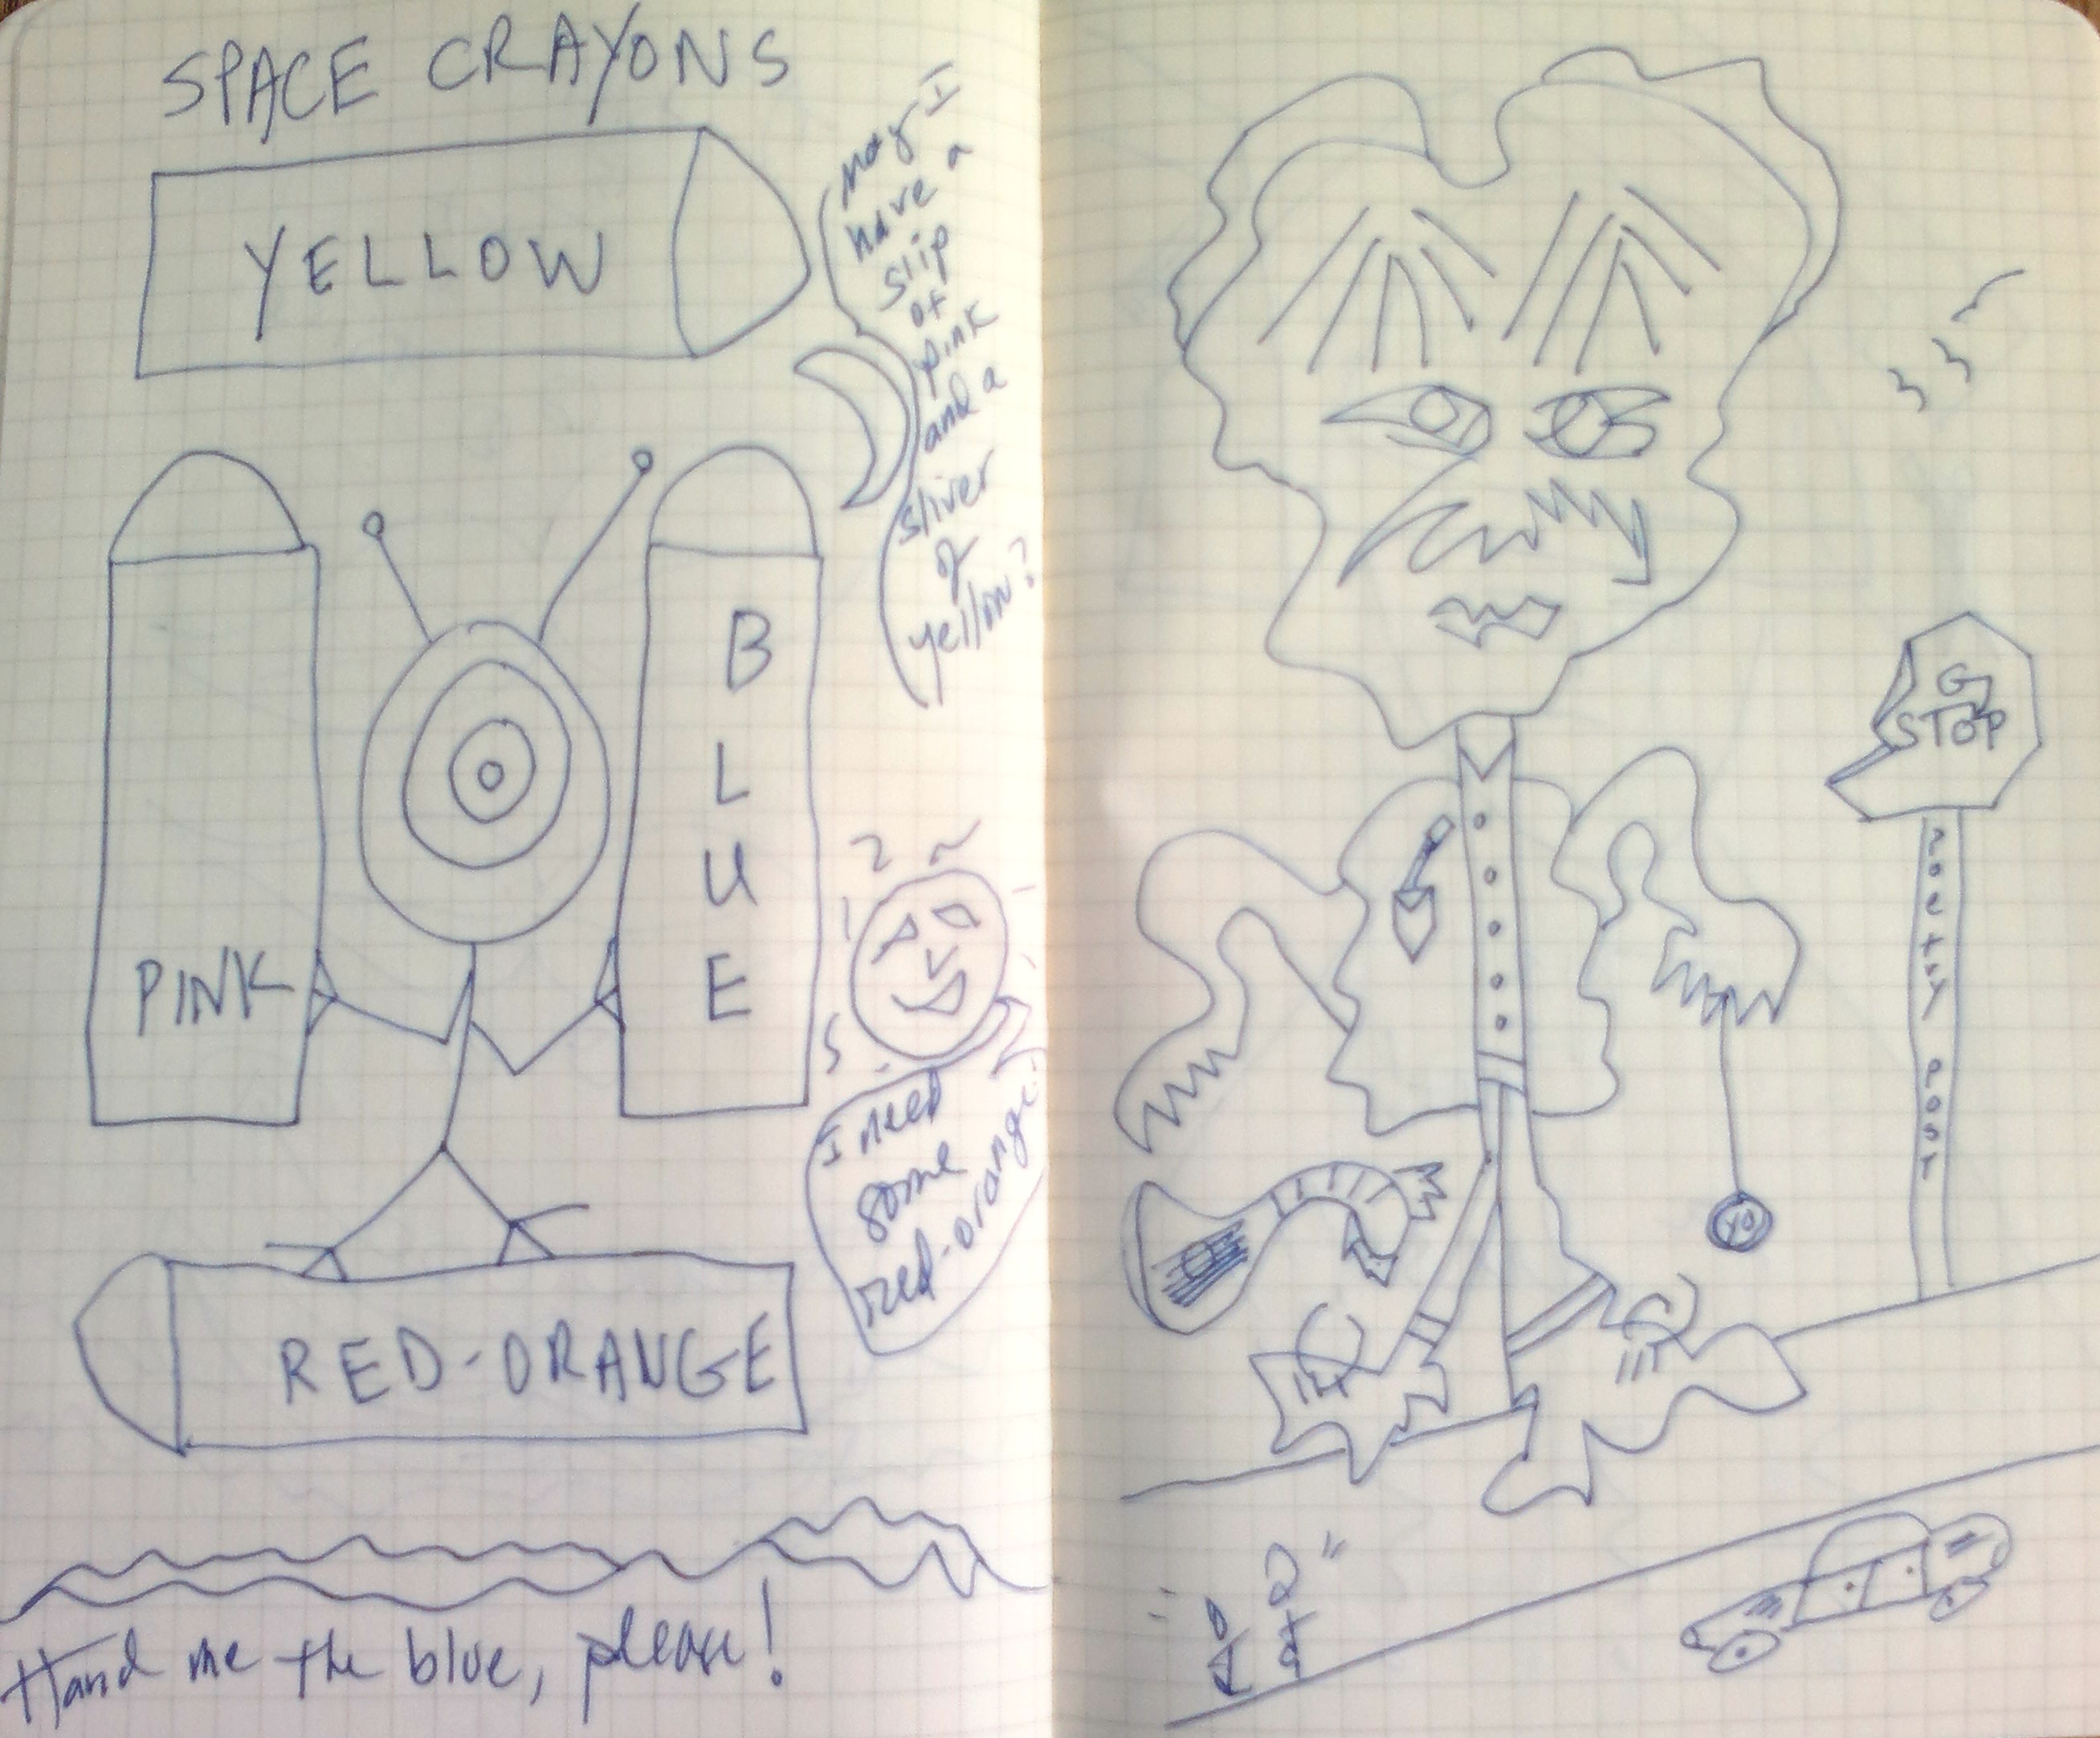 SPACE CRAYONS
YELLOW
May I
have a
slip
of
pink
and a
sliver
of
yellow?
PINK
BLUE
I need
some
red-orange
RED-ORANGE
Hand me the blue, please!
STOP
poetry post
YO